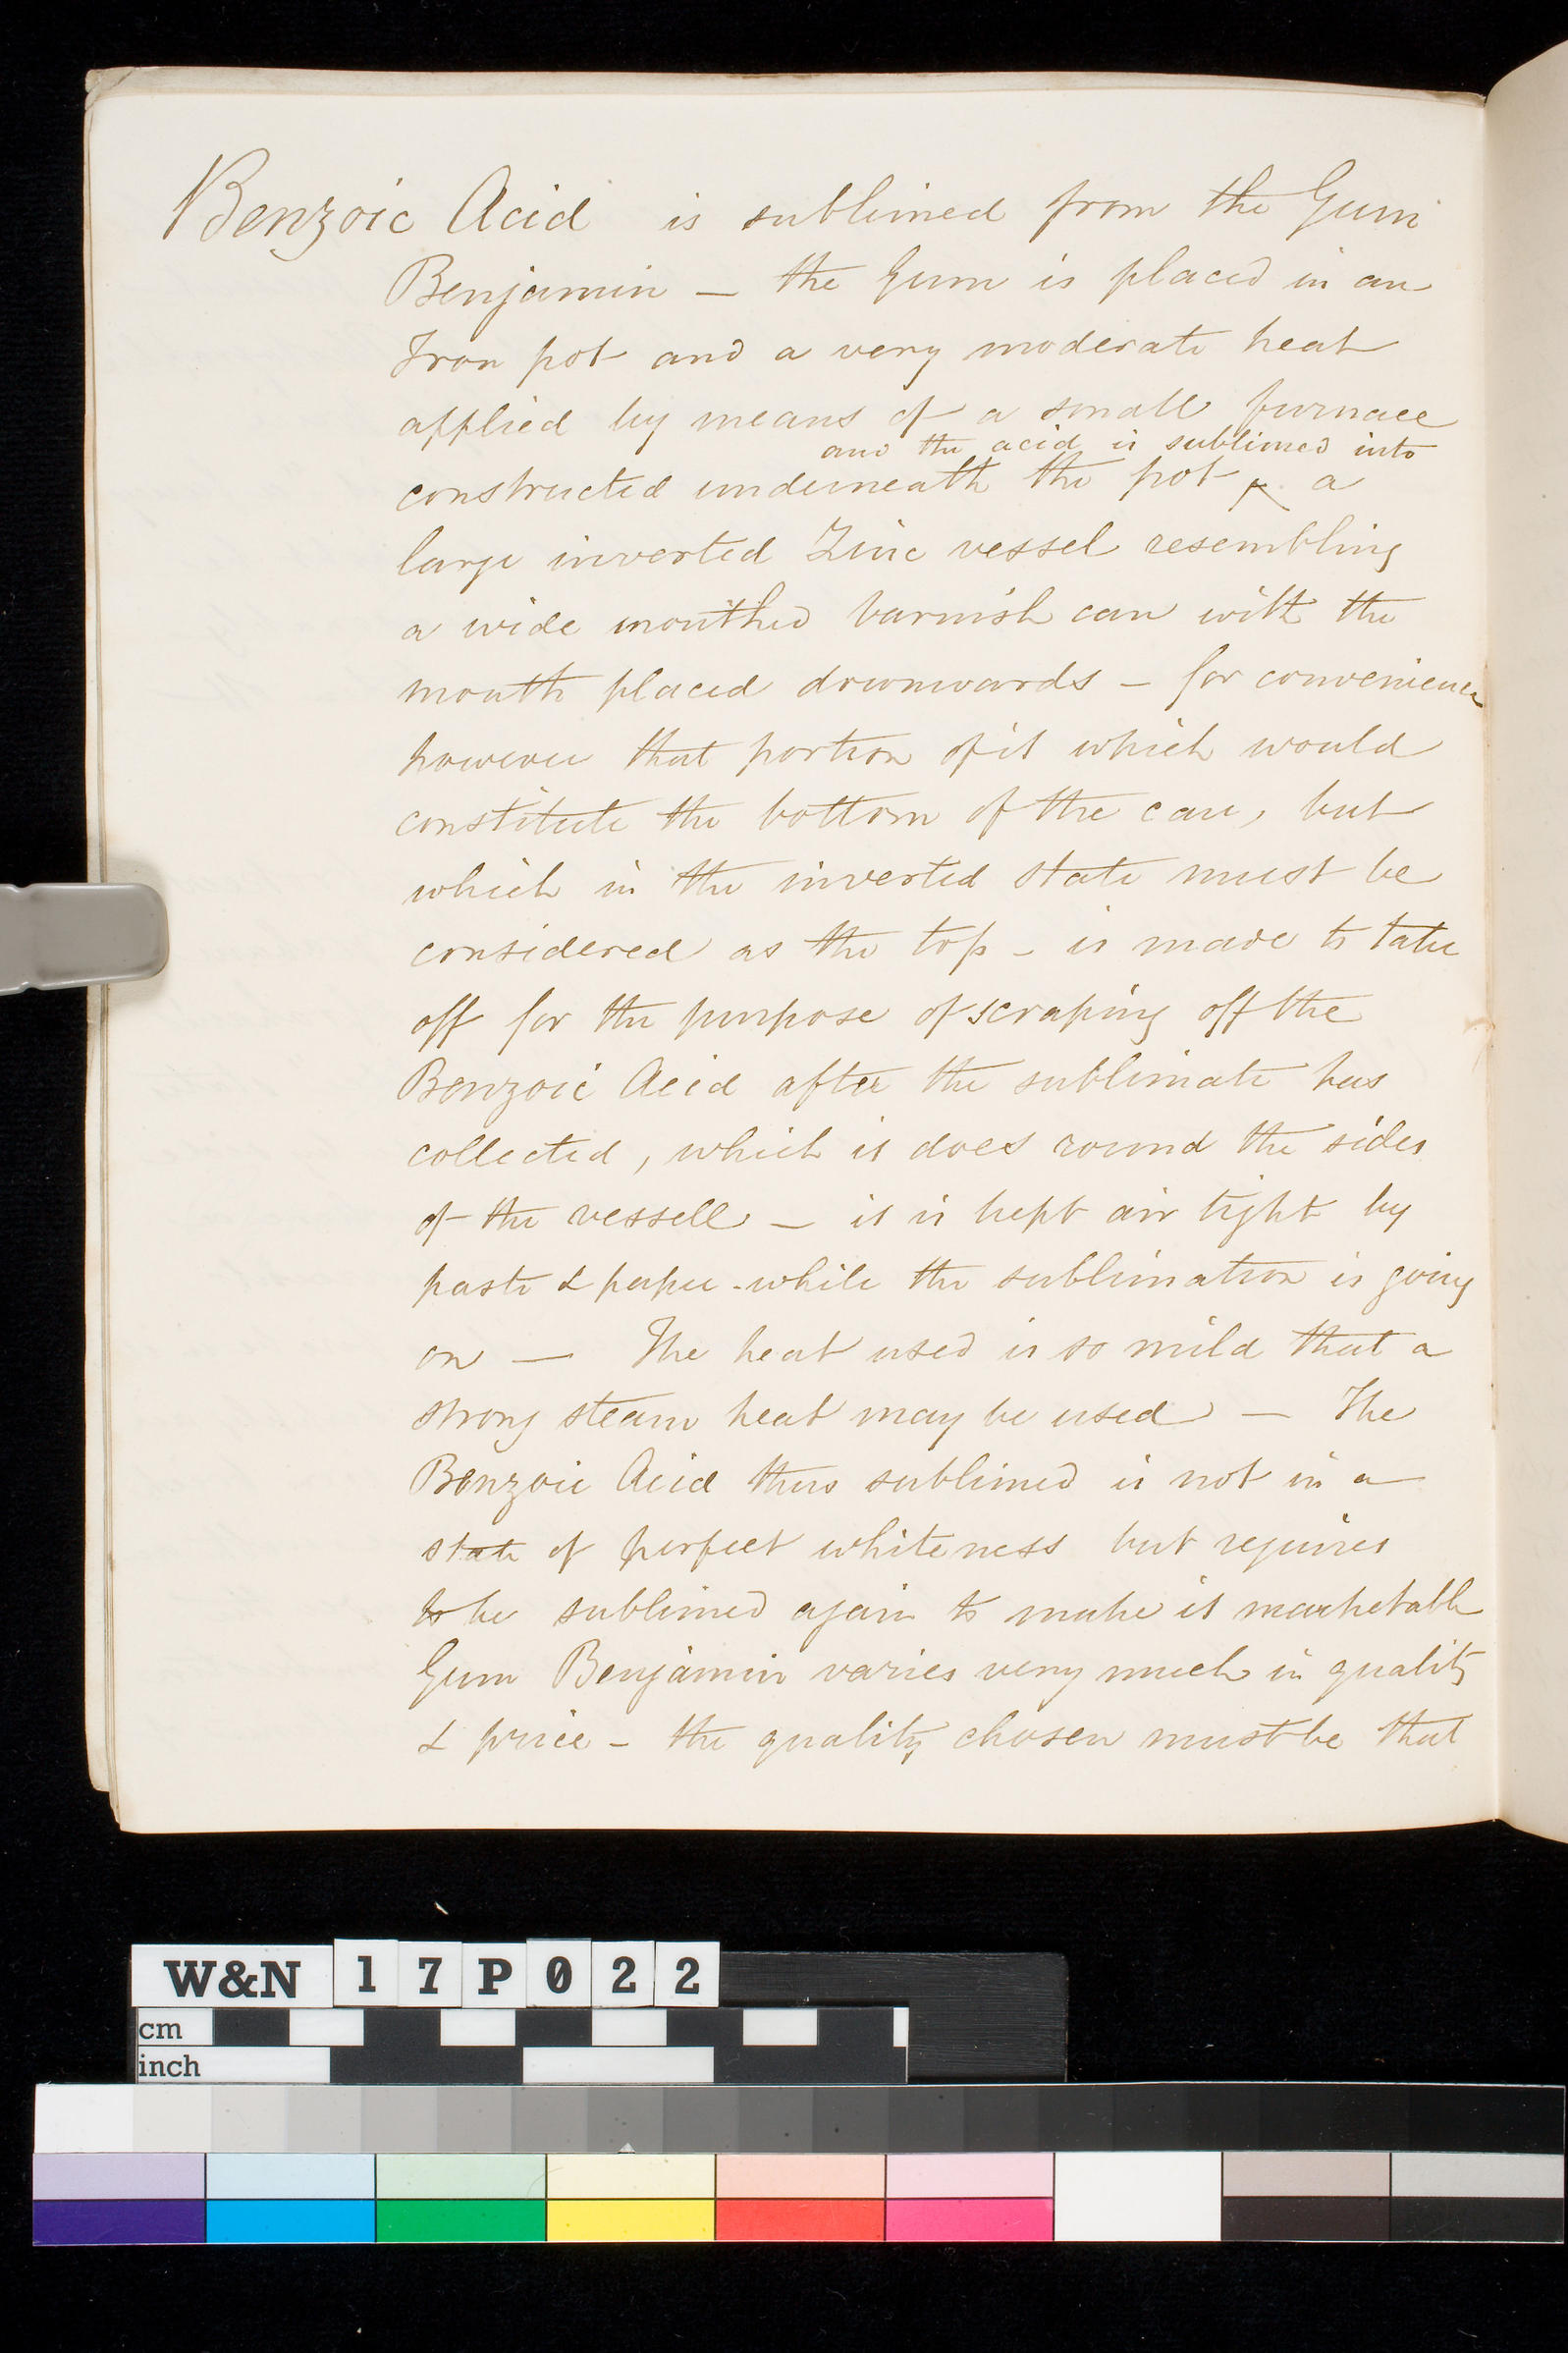 Benzoic Acid is sublimed from the Gum
Benjamin — the Gum is placed in an
Iron pot and a very moderate heat
applied by means of a small furnace
and the acid is sublimed into
constructed underneath the pot ^ a
large inverted Zinc vessel resembling
a wide mouthed varnish can with the
mouth placed downwards — for convenience
however that portion of it which would
constitute the bottom of the can, but
which in the inverted state must be
considered as the top - is made to take
off for the purpose of scraping off the
Benzoic Acid after the sublimate has
collected, which it does round the sides
of the vessell — it is kept air tight by
paste & paper - while the sublimation is going
on — The heat used is so mild that a
strong steam heat may be used — The
Benzoic Acid thus sublimed is not in a
state of perfect whiteness but requires
to be sublimed again to make it marketable
Gum Benjamin varies very much in quality
& price - the quality chosen must be that
W&N 17P022
cm
inch